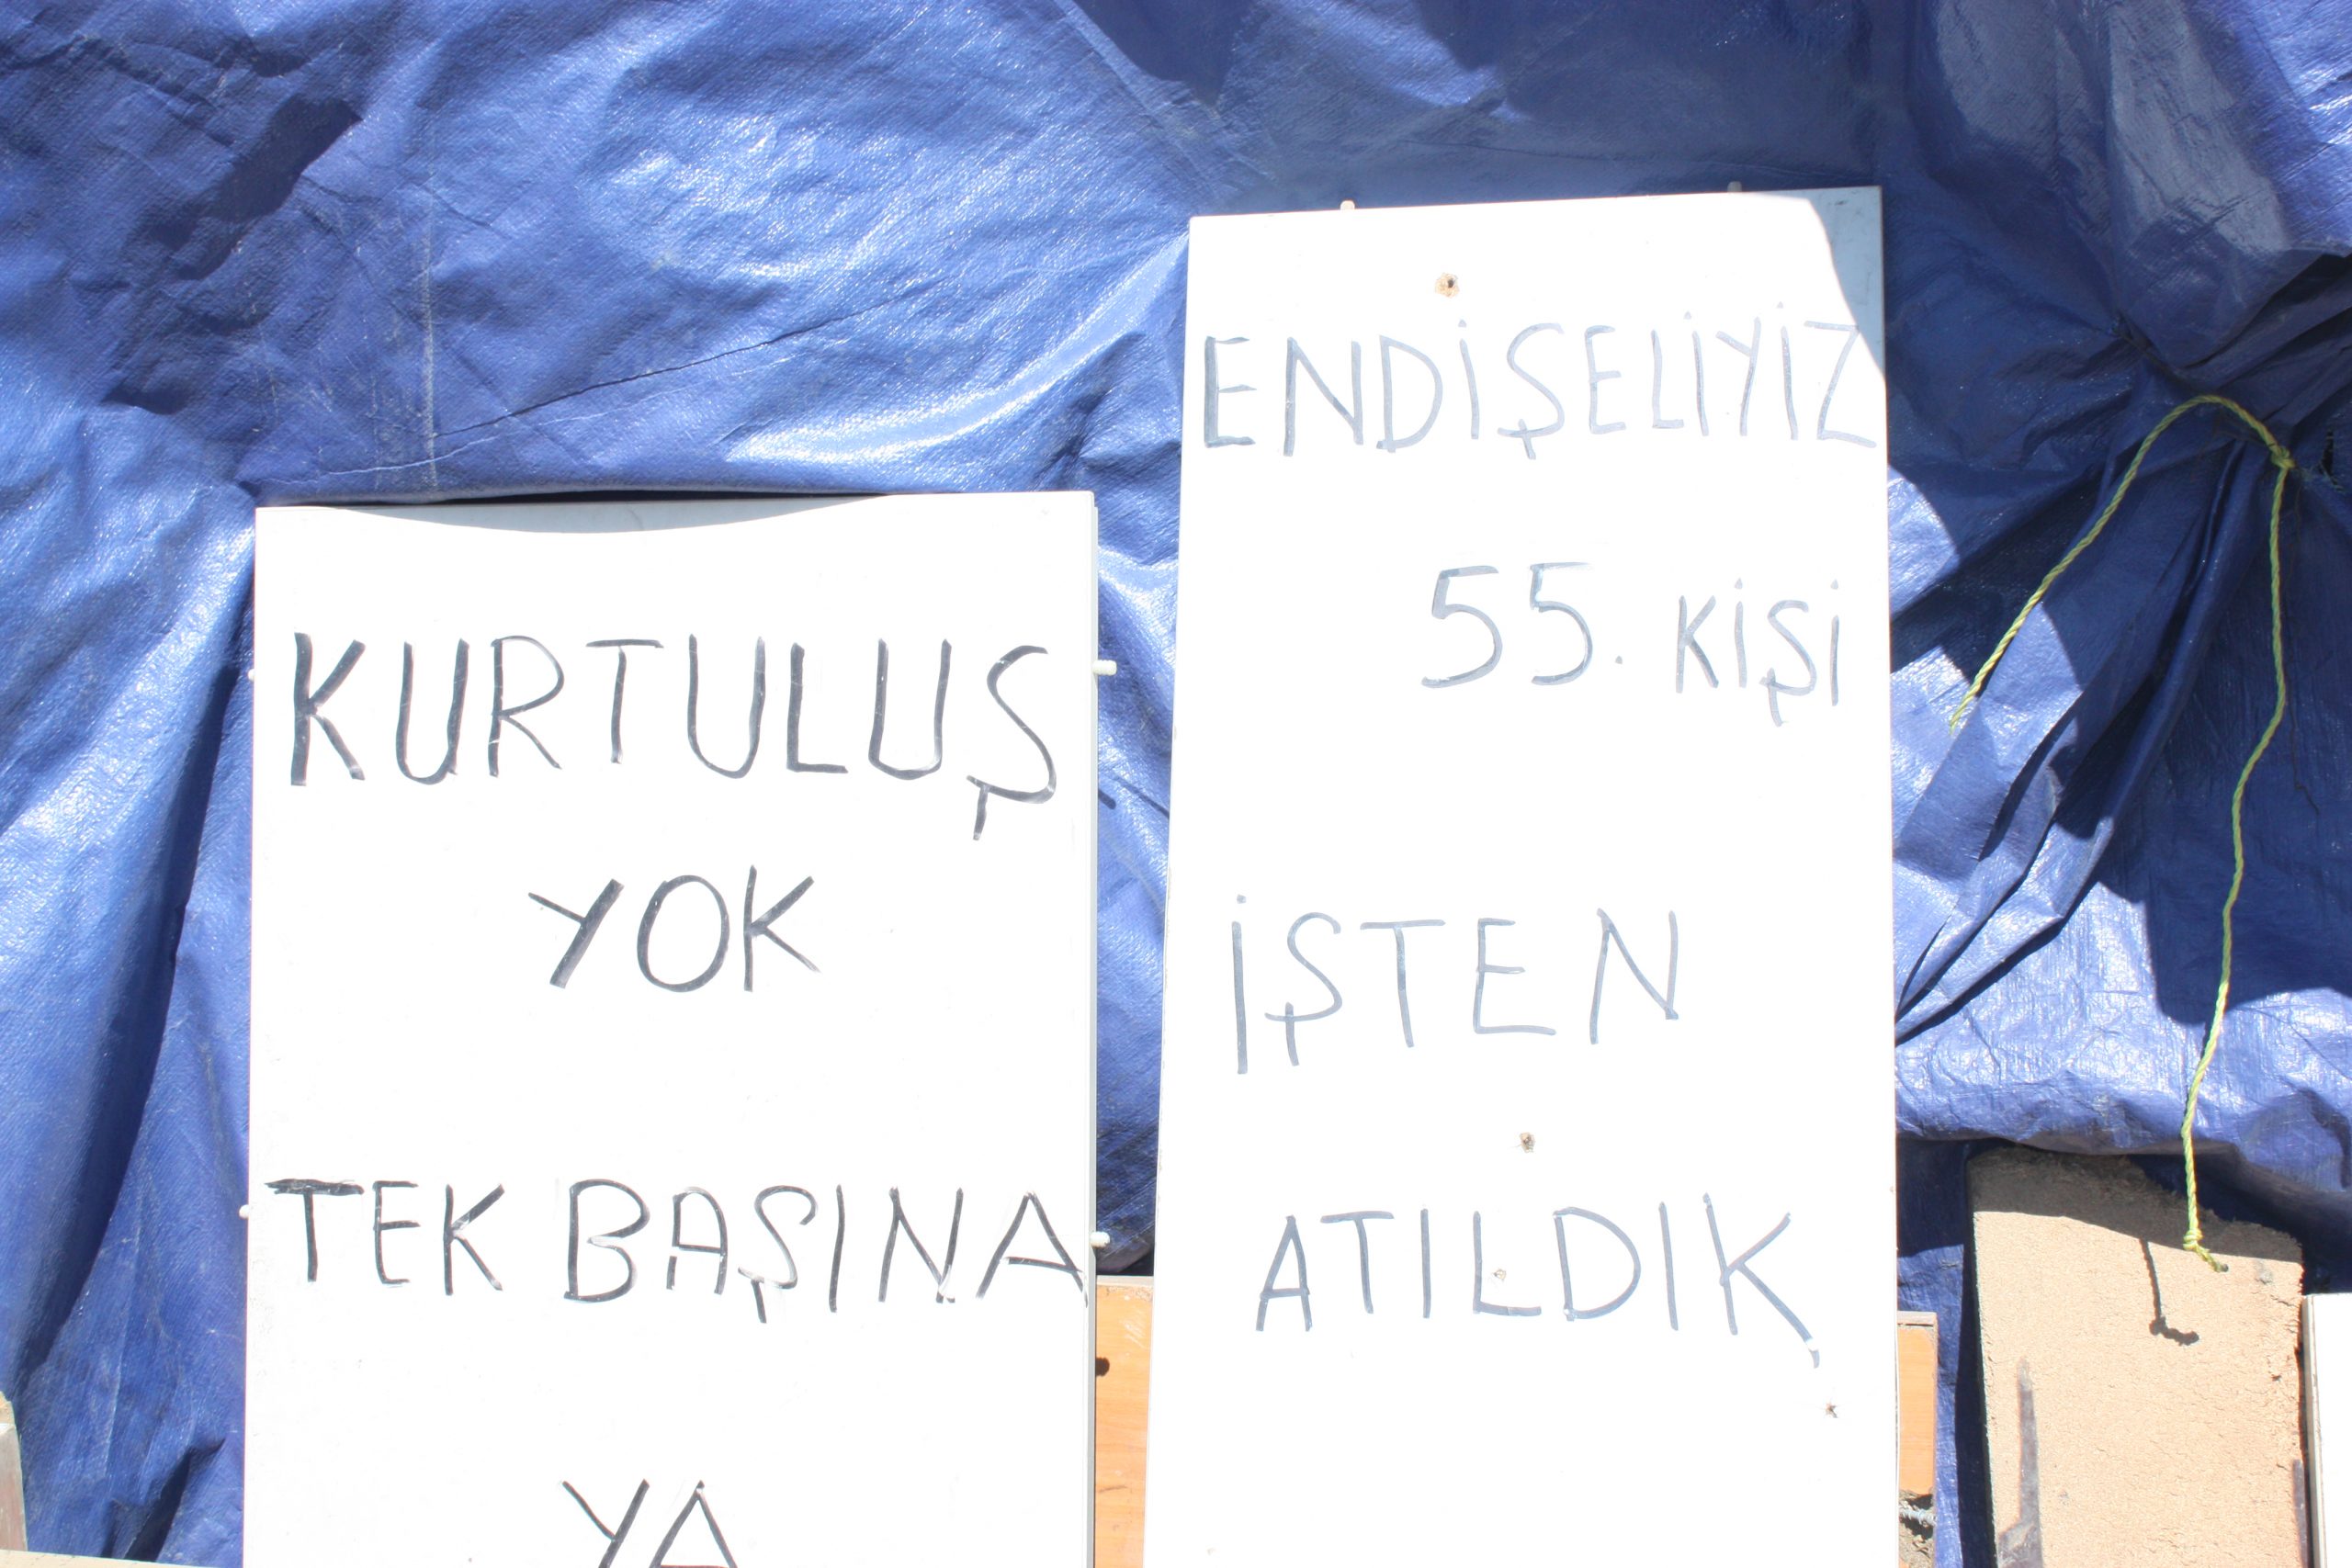 KURTULUŞ
YOK
TEK BAŞINA
YA
ENDİŞELİYİZ
55. KİŞİ
İŞTEN
ATILDIK